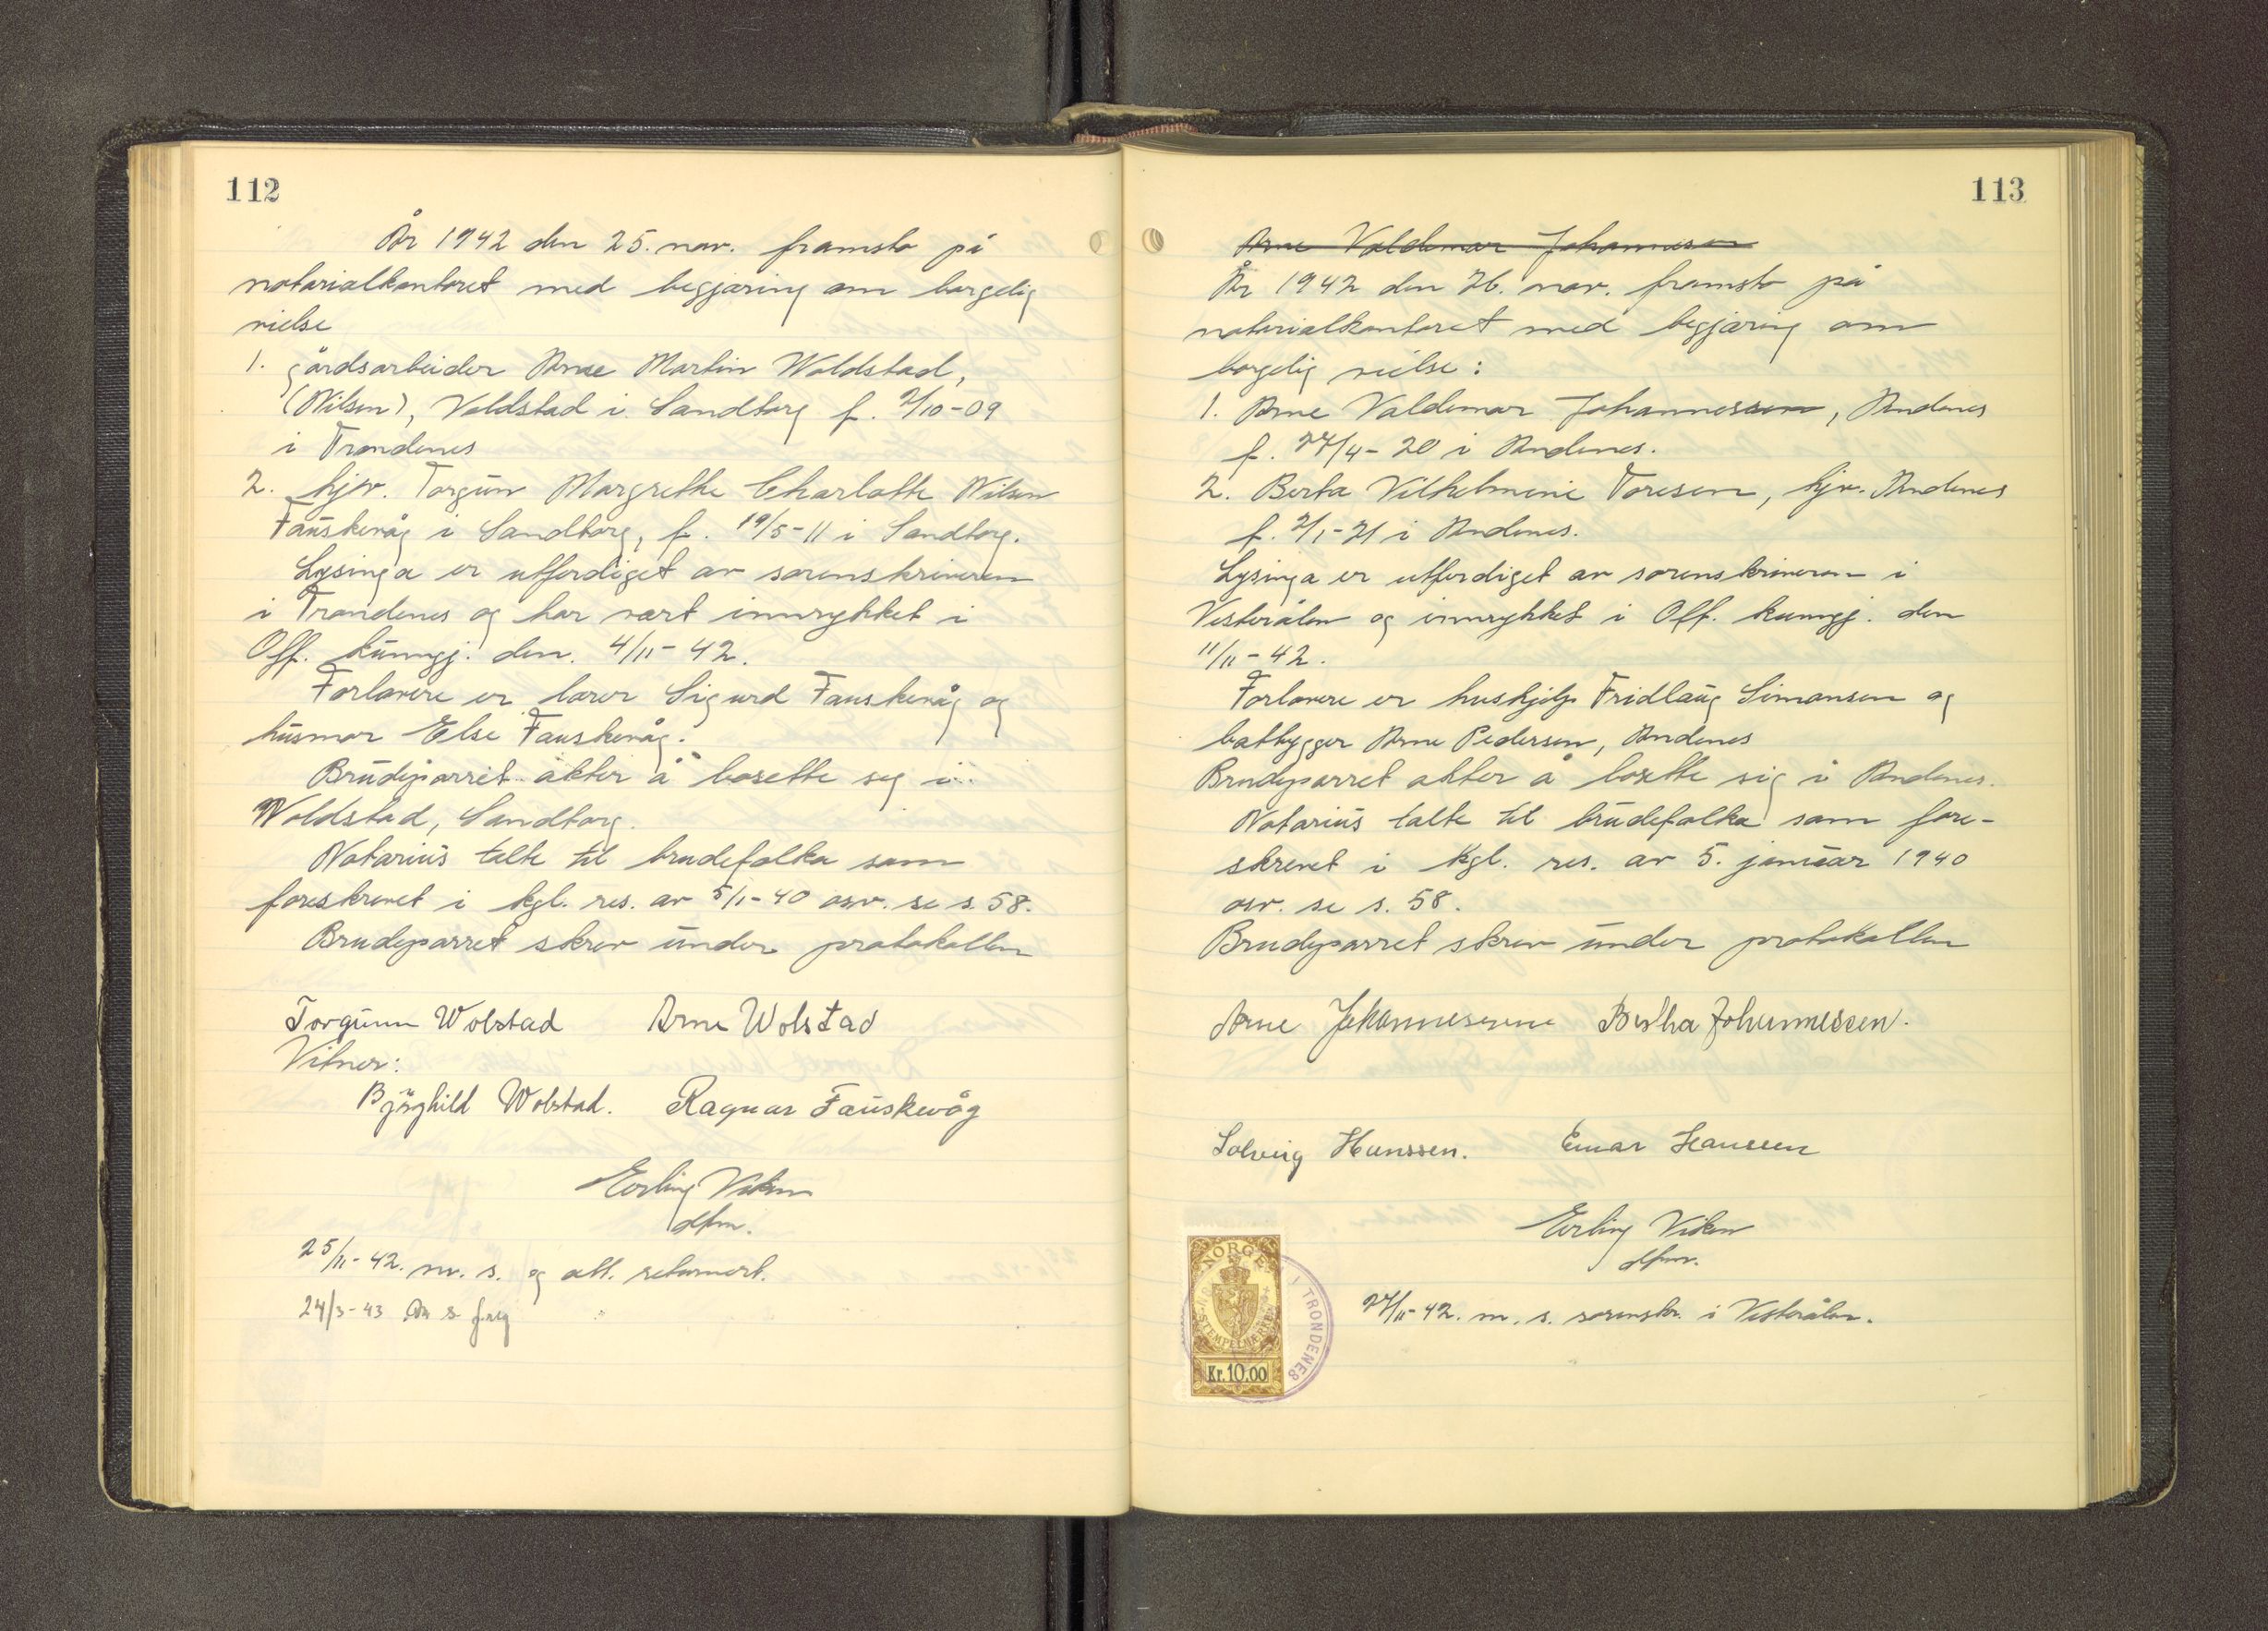 112
År 1942 den 25. nov. framsto på
notarialkontoret med begjæring om borgelig
vielse
1. gårdsarbeider Arne Martin Woldstad,
(Nilsen), Voldstad i Sandtorg f. 2/10-09
i Trondenes
2. hjv. Torgun Margrethe Charlotte Nilsen
Fauskevåg i Sandtorg, f. 19/5-11 i Sandtorg.
Lysinga er utferdiget av sorenskriveren
i Trondenes og har vært innrykket i
Off. kunngj. den. 4/11-42.
Forlovere er lærer Sigurd Fauskevåg og
husmor Else Fauskevåg.
Brudeparret akter å bosette seg i
Woldstad, Sandtorg.
Notarius talte til brudefolka som
foreskrevet i kgl. res. av 5/1-40 osv. se s. 58.
Brudeparret skrev under protokollen
Torgunn Wolstad Arne Wolstad
Vitner:
Bjørghild Wolstad. Ragnar Fauskevåg
Erling Viken
dfm.
25/11-42. m. s. og att. returnert.
24/3-43
113
Arne Valdemar Johannesen
År 1942 den 26. nov. framsto på
notarialkontoret med begjæring om
borgelig vielse:
1. Arne Valdemar Johannessen, Andenes
f. 27/4-20 i Andenes.
2. Berta Vilhelmine Toresen, hjv. Andenes
f. 2/1-21 i Andenes.
Lysinga er utferdiget av sorenskriveren i
Vesterålen og innrykket i Off. kunngj. den
11/11-42.
Forlovere er hushjelp Fridlaug Simonsen og
båtbygger Arne Pedersen, Andenes
Brudeparret akter å bosette sig i Andenes.
Notarius talte til brudefolka som fore-
skrevet i kgl. res. av 5. januar 1940
osv. se s. 58.
Brudeparret skrev under protokollen
Arne Johannessen Bertha Johannessen.
Solveig Hanssen. Einar Hanssen
Erling Viken
dfm.
NORGE
STEMPELMERKE
Kr. 10.00
I TRONDENES
27/11-42. m. s. sorenskr. i Vesterålen.